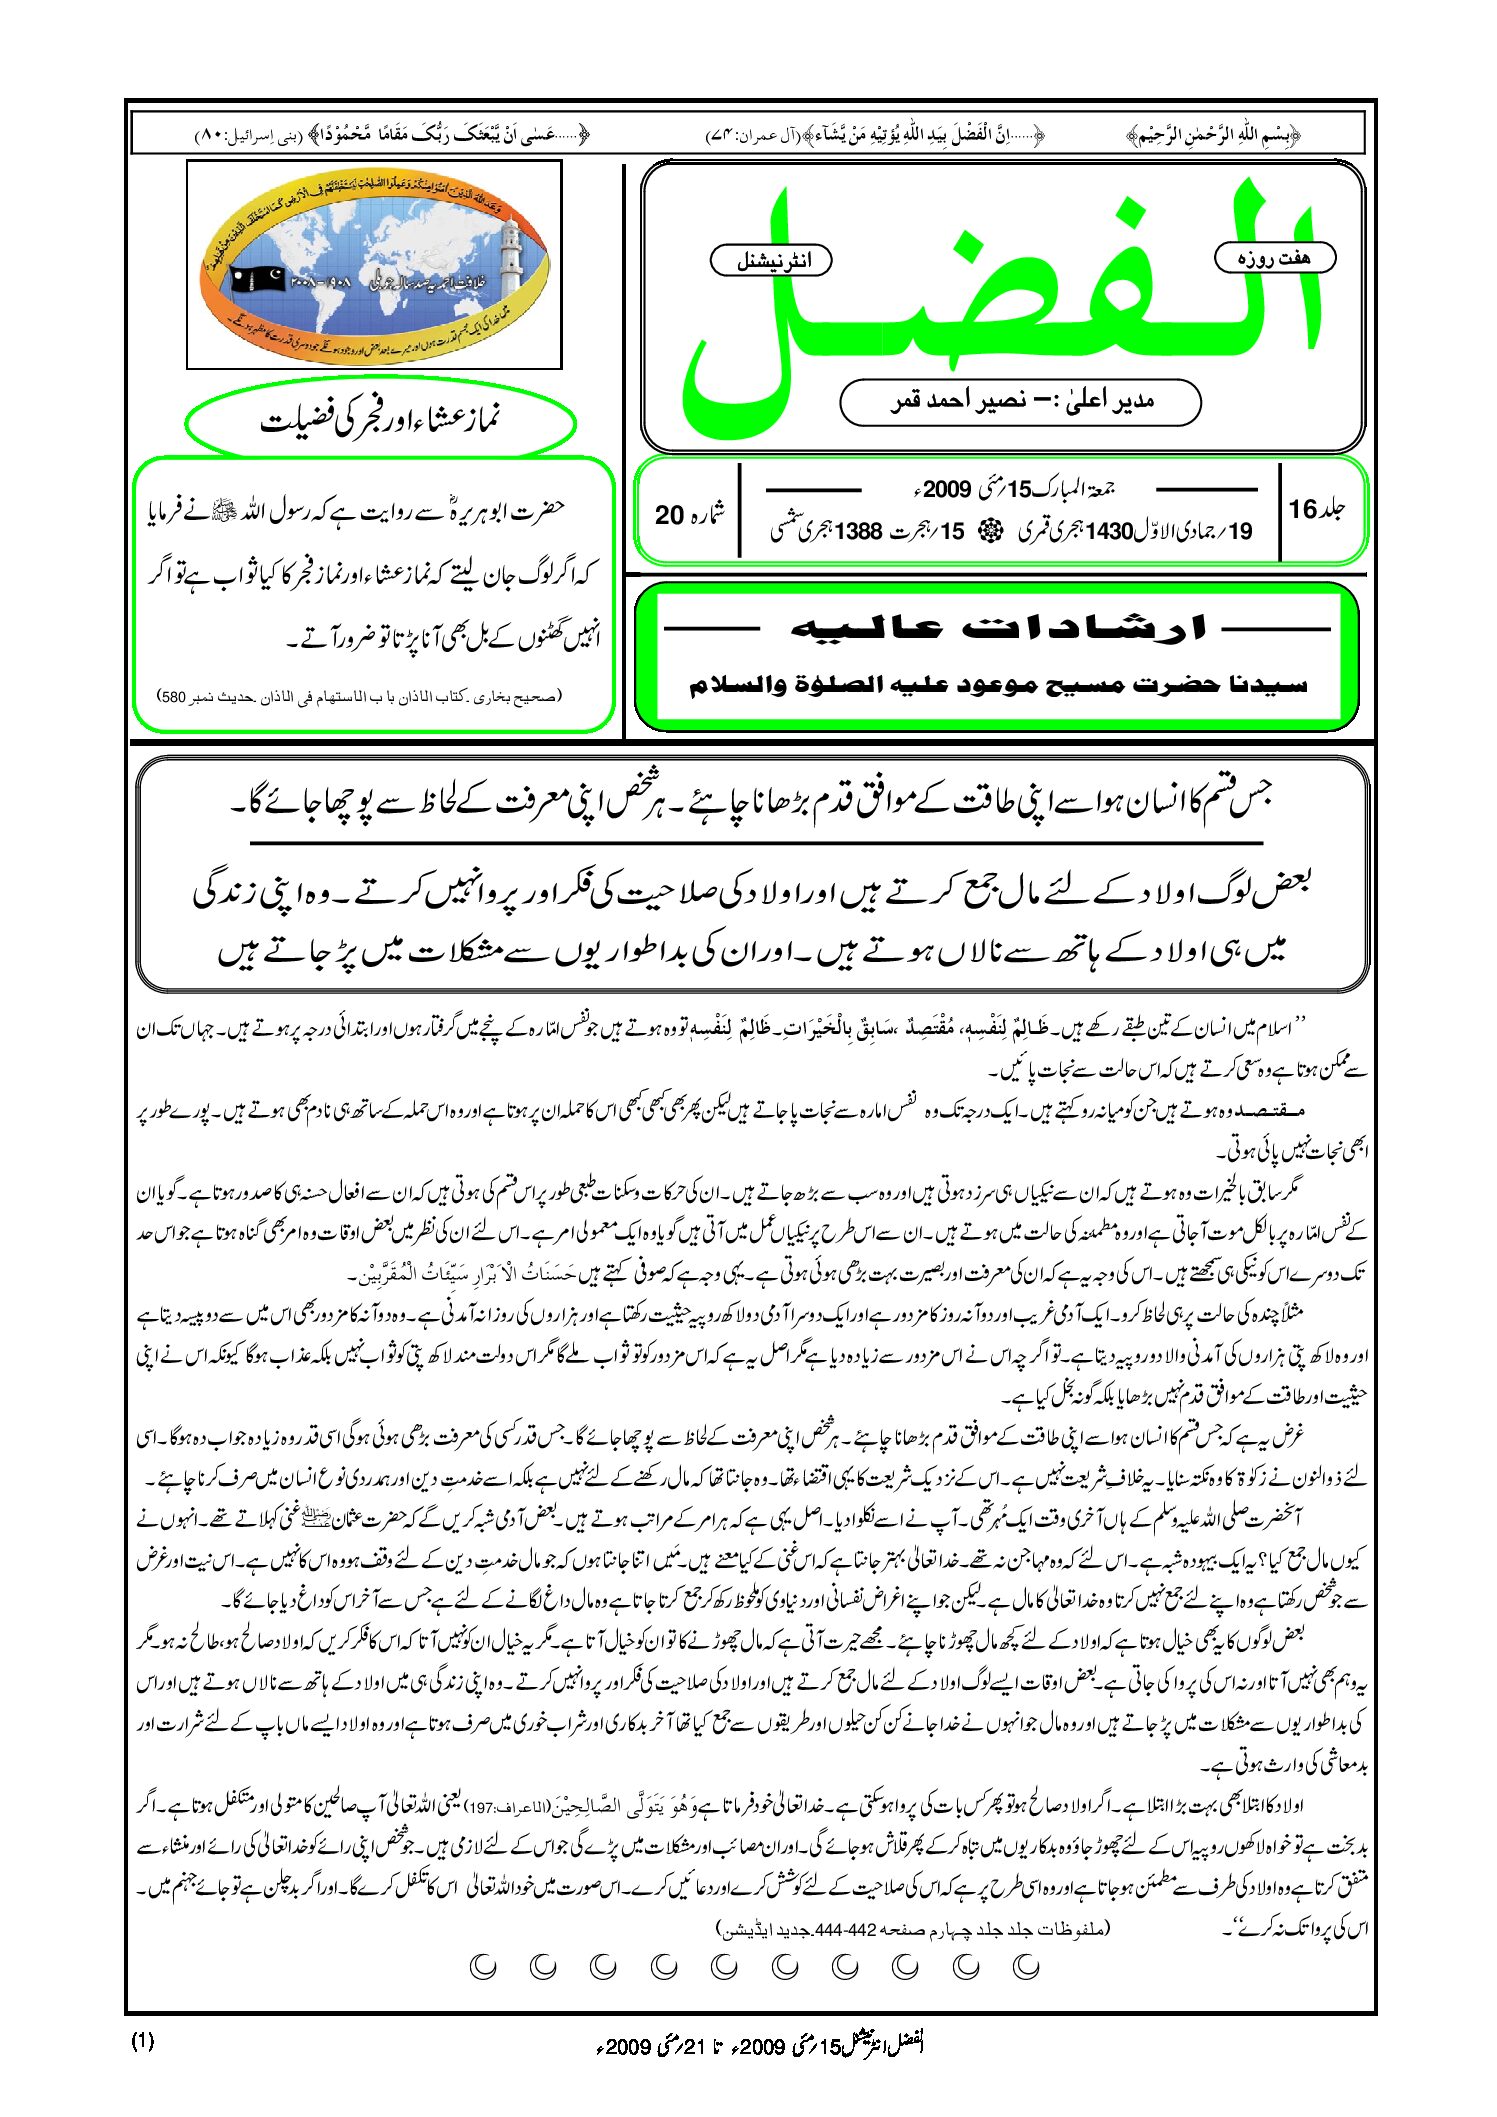 ﴿بِسْمِ اللهِ الرَّحْمٰنِ الرَّحِيْمِ﴾ ﴿......اِنَّ الْفَضْلَ بِيَدِ اللهِ يُؤْتِيْهِ مَنْ يَّشَآء﴾(آل عمران:۷۴) ﴿......عَسٰی اَنْ يَّبْعَثَکَ رَبُّکَ مَقَامًا مَّحْمُوْدًا﴾ (بنی إسرائيل:۸۰)
الفضل
ہفت روزہ
انٹرنیشنل
مدیر اعلیٰ :– نصیر احمد قمر
جلد 16
جمعۃ المبارک 15؍مئی 2009ء
19؍جمادی الاوّل 1430 ہجری قمری ۞ 15؍ہجرت 1388 ہجری شمسی
شمارہ 20
ارشادات عالیہ
سیدنا حضرت مسیح موعود علیہ الصلوٰۃ والسلام
خلافت احمدیہ صد سالہ جوبلی
۱۹۰۸-۲۰۰۸
میں خدا کی ایک مجسم قدرت ہوں اور میرے بعد بعض اور وجود ہونگے جو دوسری قدرت کا مظہر ہونگے۔
نماز عشاء اور فجر کی فضیلت
حضرت ابوہریرہؓ سے روایت ہے کہ رسول اللہ ﷺ نے فرمایا
کہ اگر لوگ جان لیتے کہ نماز عشاء اور نماز فجر کا کیا ثواب ہے تو اگر
انہیں گھٹنوں کے بل بھی آنا پڑتا تو ضرور آتے۔
(صحیح بخاری ۔کتاب الاذان باب الاستھام فی الاذان ۔حدیث نمبر 580)
جس قسم کا انسان ہو اسے اپنی طاقت کے موافق قدم بڑھانا چاہئے۔ ہر شخص اپنی معرفت کے لحاظ سے پوچھا جائے گا۔
بعض لوگ اولاد کے لئے مال جمع کرتے ہیں اور اولاد کی صلاحیت کی فکر اور پروا نہیں کرتے۔ وہ اپنی زندگی
میں ہی اولاد کے ہاتھ سے نالاں ہوتے ہیں۔ اور ان کی بداطواریوں سے مشکلات میں پڑ جاتے ہیں
’’اسلام میں انسان کے تین طبقے رکھے ہیں۔ ظَالِمٌ لِنَفْسِهٖ، مُقْتَصِدٌ ،سَابِقٌ بِالْخَيْرَاتِ۔ ظَالِمٌ لِنَفْسِهٖ تو وہ ہوتے ہیں جو نفس امّارہ کے پنجے میں گرفتار ہوں اور ابتدائی درجہ پر ہوتے ہیں۔ جہاں تک ان
سے ممکن ہوتا ہے وہ سعی کرتے ہیں کہ اس حالت سے نجات پائیں۔
مقتصد وہ ہوتے ہیں جن کو میانہ رو کہتے ہیں۔ ایک درجہ تک وہ نفس امارہ سے نجات پا جاتے ہیں لیکن پھر بھی کبھی کبھی اس کا حملہ ان پر ہوتا ہے اور وہ اس حملہ کے ساتھ ہی نادم بھی ہوتے ہیں۔ پورے طور پر
ابھی نجات نہیں پائی ہوتی۔
مگر سابق بالخیرات وہ ہوتے ہیں کہ ان سے نیکیاں ہی سرزد ہوتی ہیں اور وہ سب سے بڑھ جاتے ہیں۔ ان کی حرکات وسکنات طبعی طور پر اس قسم کی ہوتی ہیں کہ ان سے افعال حسنہ ہی کا صدور ہوتا ہے۔ گویا ان
کے نفس امّارہ پر بالکل موت آ جاتی ہے اور وہ مطمئنہ کی حالت میں ہوتے ہیں۔ ان سے اس طرح پر نیکیاں عمل میں آتی ہیں گویا وہ ایک معمولی امر ہے۔ اس لئے ان کی نظر میں بعض اوقات وہ امر بھی گناہ ہوتا ہے جو اس حد
تک دوسرے اس کو نیکی ہی سمجھتے ہیں۔ اس کی وجہ یہ ہے کہ ان کی معرفت اور بصیرت بہت بڑھی ہوئی ہوتی ہے۔ یہی وجہ ہے کہ صوفی کہتے ہیں حَسَنَاتُ الْاَبْرَارِ سَيِّئَاتُ الْمُقَرَّبِيْن۔
مثلاً چندہ کی حالت پر ہی لحاظ کرو۔ ایک آدمی غریب اور دو آنہ روز کا مزدور ہے اور ایک دوسرا آدمی دو لاکھ روپیہ حیثیت رکھتا ہے اور ہزاروں کی روزانہ آمدنی ہے۔ وہ دو آنہ کا مزدور بھی اس میں سے دو پیسہ دیتا ہے
اور وہ لاکھ پتی ہزاروں کی آمدنی والا دو روپیہ دیتا ہے۔ تو اگرچہ اس نے اس مزدور سے زیادہ دیا ہے مگر اصل یہ ہے کہ اس مزدور کو تو ثواب ملے گا مگر اس دولت مند لاکھ پتی کو ثواب نہیں بلکہ عذاب ہوگا کیونکہ اس نے اپنی
حیثیت اور طاقت کے موافق قدم نہیں بڑھایا بلکہ گونہ بخل کیا ہے۔
غرض یہ ہے کہ جس قسم کا انسان ہو اسے اپنی طاقت کے موافق قدم بڑھانا چاہئے۔ ہر شخص اپنی معرفت کے لحاظ سے پوچھا جائے گا۔ جس قدر کسی کی معرفت بڑھی ہوئی ہوگی اسی قدر وہ زیادہ جواب دہ ہوگا۔ اسی
لئے ذوالنون نے زکوٰۃ کا وہ نکتہ سنایا۔ یہ خلافِ شریعت نہیں ہے۔ اس کے نزدیک شریعت کا یہی اقتضاء تھا۔ وہ جانتا تھا کہ مال رکھنے کے لئے نہیں ہے بلکہ اسے خدمتِ دین اور ہمدردی نوع انسان میں صرف کرنا چاہئے۔
آنحضرت صلی اللہ علیہ وسلم کے ہاں آخری وقت ایک مُہر تھی۔ آپ نے اسے نکلوا دیا۔ اصل یہی ہے کہ ہر امر کے مراتب ہوتے ہیں۔ بعض آدمی شبہ کریں گے کہ حضرت عثمان ؓ غنی کہلاتے تھے۔ انہوں نے
کیوں مال جمع کیا؟ یہ ایک بیہودہ شبہ ہے۔ اس لئے کہ وہ مہاجن نہ تھے۔ خدا تعالیٰ بہتر جانتا ہے کہ اس غنی کے کیا معنے ہیں۔ مَیں اتنا جانتا ہوں کہ جو مال خدمتِ دین کے لئے وقف ہو وہ اس کا نہیں ہے۔ اس نیت اور غرض
سے جو شخص رکھتا ہے وہ اپنے لئے جمع نہیں کرتا وہ خدا تعالیٰ کا مال ہے۔ لیکن جو اپنے اغراض نفسانی اور دنیاوی کو ملحوظ رکھ کر جمع کرتا جاتا ہے وہ مال داغ لگانے کے لئے ہے جس سے آخر اس کو داغ دیا جائے گا۔
بعض لوگوں کا یہ بھی خیال ہوتا ہے کہ اولاد کے لئے کچھ مال چھوڑنا چاہئے۔ مجھے حیرت آتی ہے کہ مال چھوڑنے کا تو ان کو خیال آتا ہے۔ مگر یہ خیال ان کو نہیں آتا کہ اس کا فکر کریں کہ اولاد صالح ہو، طالح نہ ہو۔ مگر
یہ وہم بھی نہیں آتا اور نہ اس کی پروا کی جاتی ہے۔ بعض اوقات ایسے لوگ اولاد کے لئے مال جمع کرتے ہیں اور اولاد کی صلاحیت کی فکر اور پروا نہیں کرتے۔ وہ اپنی زندگی ہی میں اولاد کے ہاتھ سے نالاں ہوتے ہیں اور اس
کی بداطواریوں سے مشکلات میں پڑ جاتے ہیں اور وہ مال جو انہوں نے خدا جانے کن کن حیلوں اور طریقوں سے جمع کیا تھا آخر بدکاری اور شراب خوری میں صرف ہوتا ہے اور وہ اولاد ایسے ماں باپ کے لئے شرارت اور
بدمعاشی کی وارث ہوتی ہے۔
اولاد کا ابتلا بھی بہت بڑا ابتلا ہے۔ اگر اولاد صالح ہو تو پھر کس بات کی پروا ہو سکتی ہے۔ خدا تعالیٰ خود فرماتا ہے وَهُوَ يَتَوَلَّى الصَّالِحِيْنَ (الاعراف:197) یعنی اللہ تعالیٰ آپ صالحین کا متولی اور متکفل ہوتا ہے۔ اگر
بدبخت ہے تو خواہ لاکھوں روپیہ اس کے لئے چھوڑ جاؤ وہ بدکاریوں میں تباہ کر کے پھر قلاش ہو جائے گی۔ اور ان مصائب اور مشکلات میں پڑے گی جو اس کے لئے لازمی ہیں۔ جو شخص اپنی رائے کو خدا تعالیٰ کی رائے اور منشاء سے
متفق کرتا ہے وہ اولاد کی طرف سے مطمئن ہو جاتا ہے اور وہ اسی طرح پر ہے کہ اس کی صلاحیت کے لئے کوشش کرے اور دعائیں کرے۔ اس صورت میں خود اللہ تعالیٰ اس کا تکفل کرے گا۔ اور اگر بدچلن ہے تو جائے جہنم میں۔
اس کی پروا تک نہ کرے‘‘۔ (ملفوظات جلد جلد چہارم صفحہ 442-444۔جدید ایڈیشن)
الفضل انٹرنیشنل 15؍مئی 2009ء تا 21؍مئی 2009ء
(1)